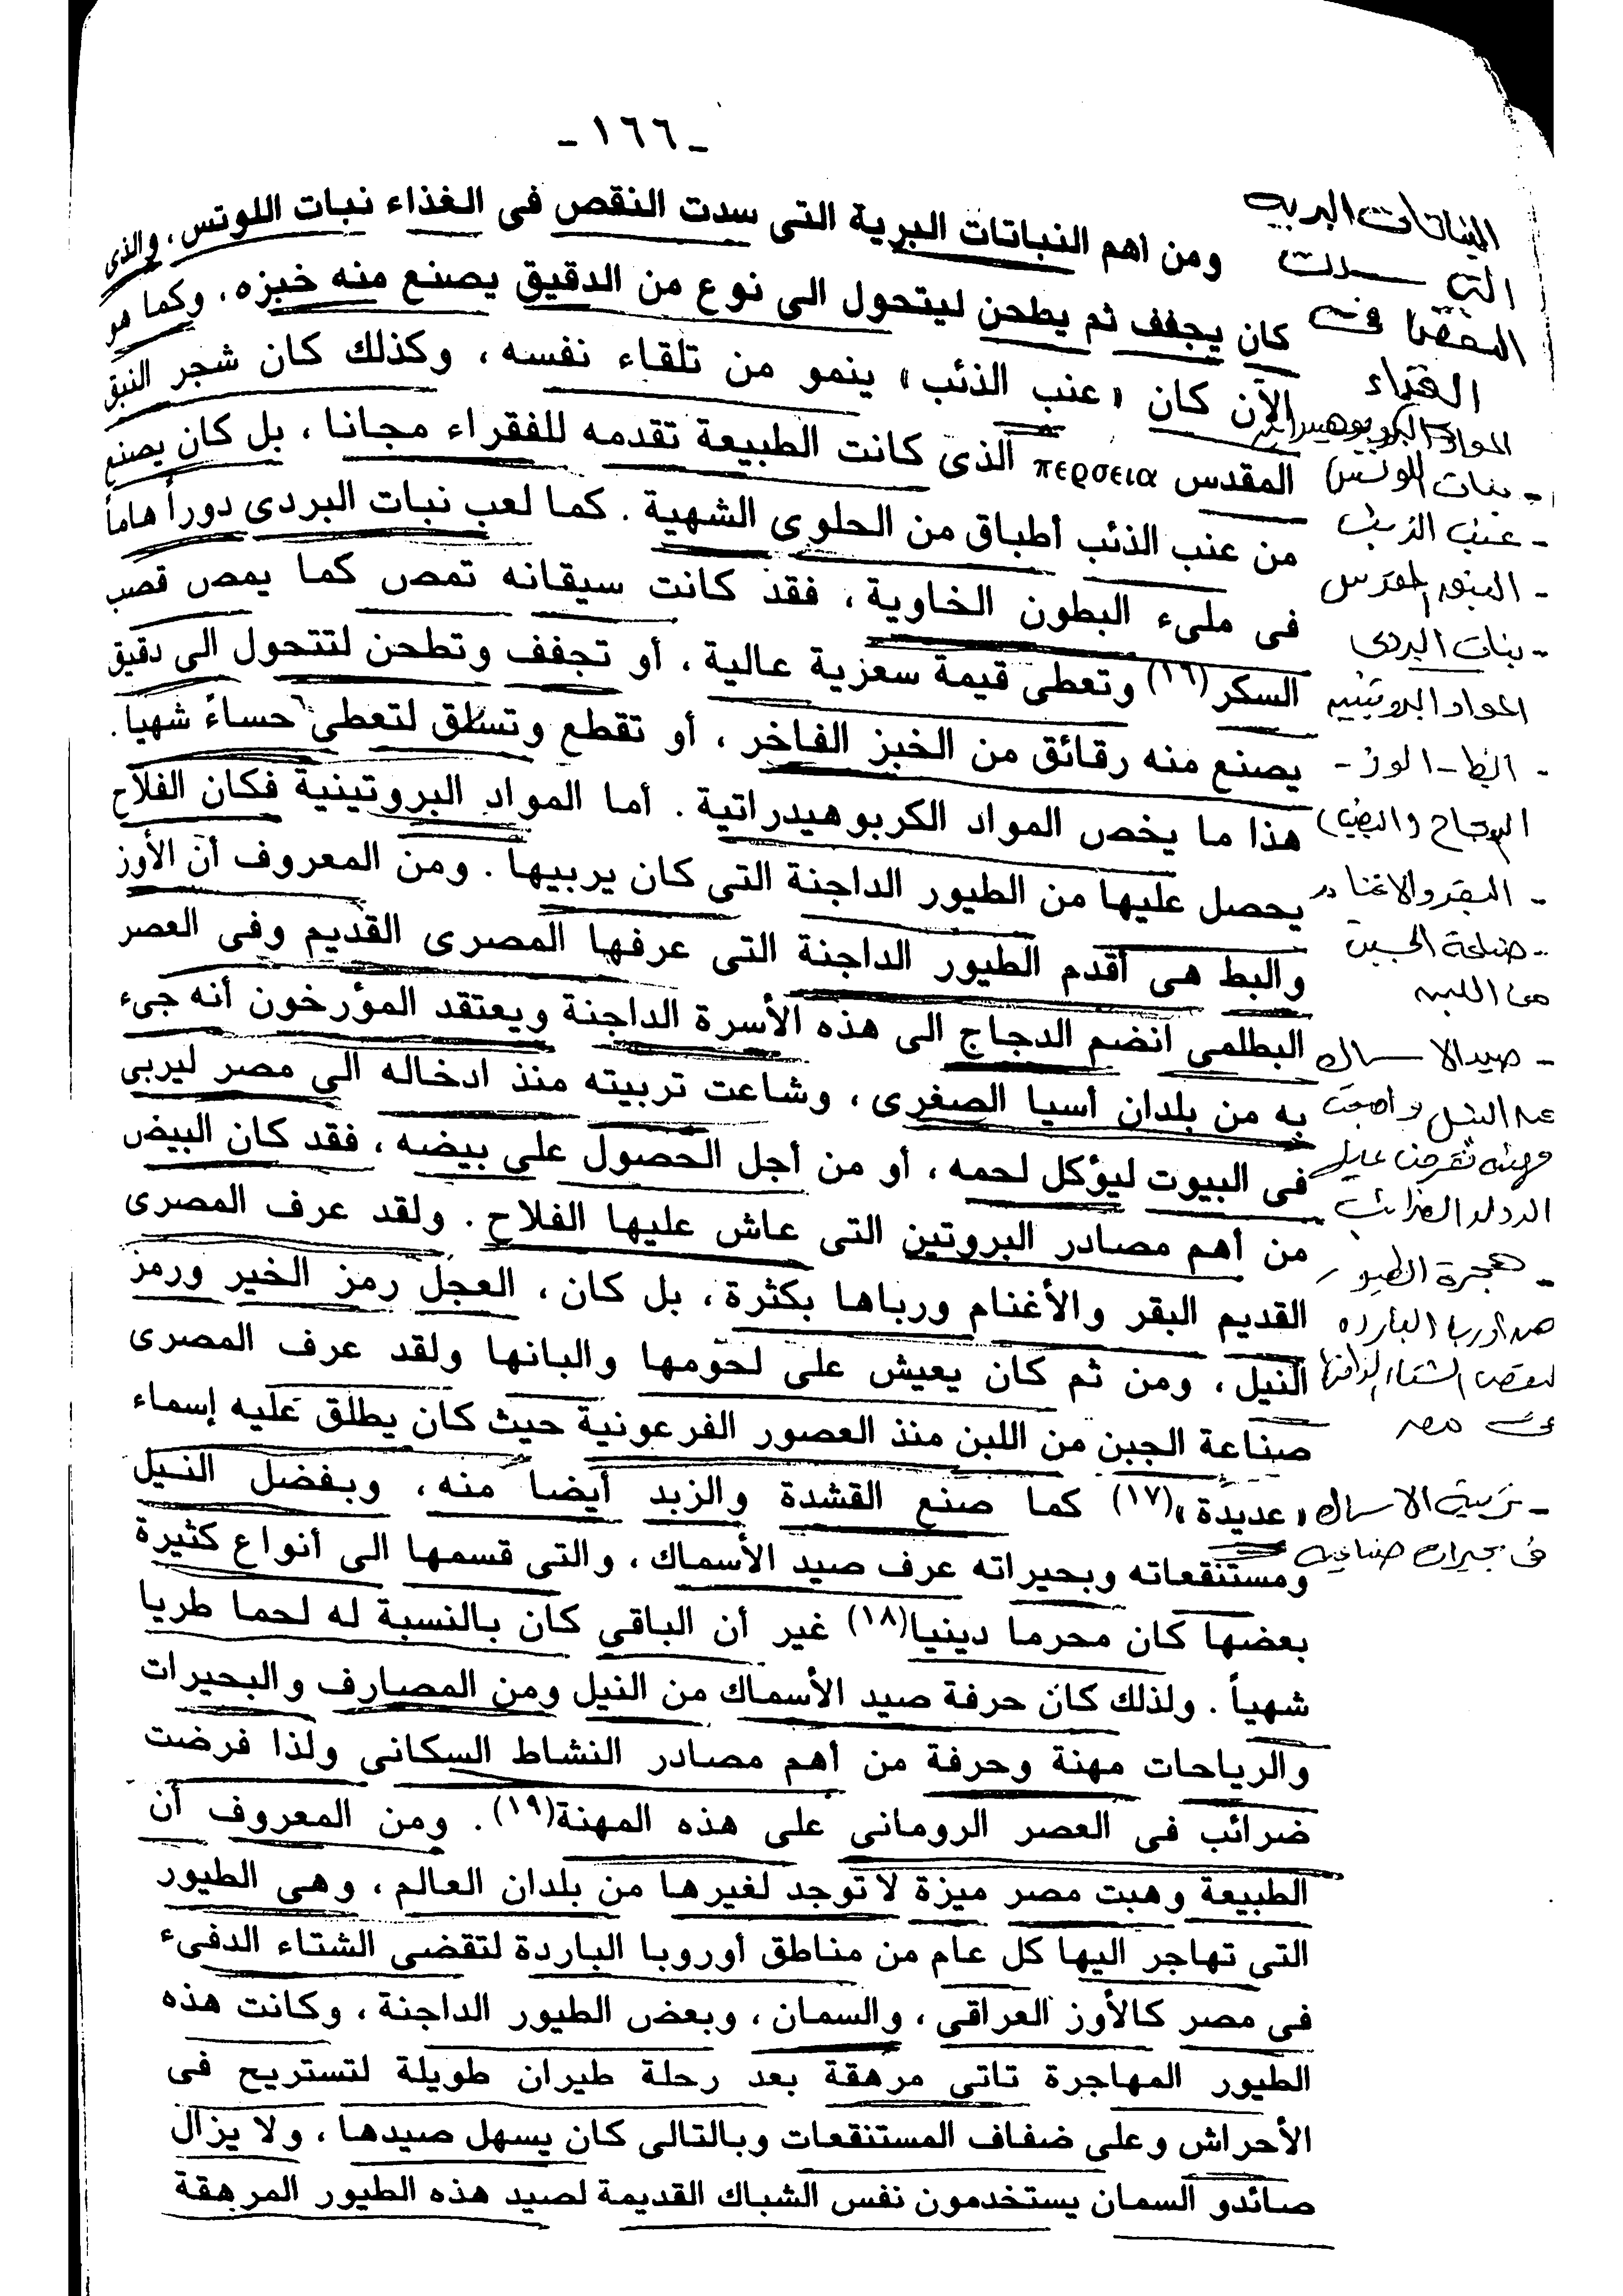 -١٦٦-
ومن أهم النباتات البرية التى سدت النقص فى الغذاء نبات اللوتس، والذى
كان يجفف ثم يطحن ليتحول الى نوع من الدقيق يصنع منه خبزه، وكما هو
الآن كان «عنب الذئب» ينمو من تلقاء نفسه، وكذلك كان شجر النبق
المقدس περσεια الذى كانت الطبيعة تقدمه للفقراء مجانا، بل كان يصنع
من عنب الذئب أطباق من الحلوى الشهية. كما لعب نبات البردى دوراً هاماً
فى ملىء البطون الخاوية، فقد كانت سيقانه تمص كما يمص قصب
السكر(١٦) وتعطى قيمة سعزية عالية، أو تجفف وتطحن لتتحول الى دقيق
يصنع منه رقائق من الخبز الفاخر، أو تقطع وتسلق لتعطى حساءً شهيا.
هذا ما يخص المواد الكربوهيدراتية. أما المواد البروتينية فكان الفلاح
يحصل عليها من الطيور الداجنة التى كان يربيها. ومن المعروف أن الأوز
والبط هى أقدم الطيور الداجنة التى عرفها المصرى القديم وفى العصر
البطلمى انضم الدجاج الى هذه الأسرة الداجنة ويعتقد المؤرخون أنه جىء
به من بلدان أسيا الصغرى، وشاعت تربيته منذ ادخاله الى مصر ليربى
فى البيوت ليؤكل لحمه، أو من أجل الحصول على بيضه، فقد كان البيض
من أهم مصادر البروتين التى عاش عليها الفلاح. ولقد عرف المصرى
القديم البقر والأغنام ورباها بكثرة، بل كان، العجل رمز الخير ورمز
النيل، ومن ثم كان يعيش على لحومها والبانها ولقد عرف المصرى
صناعة الجبن من اللبن منذ العصور الفرعونية حيث كان يطلق عليه إسماء
«عديدة»(١٧) كما صنع القشدة والزبد أيضا منه، وبفضل النيل
ومستنقعاته وبحيراته عرف صيد الأسماك، والتى قسمها الى أنواع كثيرة
بعضها كان محرما دينيا(١٨) غير أن الباقى كان بالنسبة له لحما طريا
شهياً. ولذلك كان حرفة صيد الأسماك من النيل ومن المصارف والبحيرات
والرياحات مهنة وحرفة من أهم مصادر النشاط السكانى ولذا فرضت
ضرائب فى العصر الرومانى على هذه المهنة(١٩). ومن المعروف أن
الطبيعة وهبت مصر ميزة لا توجد لغيرها من بلدان العالم، وهى الطيور
التى تهاجر اليها كل عام من مناطق أوروبا الباردة لتقضى الشتاء الدفىء
فى مصر كالأوز العراقى، والسمان، وبعض الطيور الداجنة، وكانت هذه
الطيور المهاجرة تاتى مرهقة بعد رحلة طيران طويلة لتستريح فى
الأحراش وعلى ضفاف المستنقعات وبالتالى كان يسهل صيدها، ولا يزال
صائدو السمان يستخدمون نفس الشباك القديمة لصيد هذه الطيور المرهقة
النباتات البريه
التى سدت
النقص فى
الغذاء
المواد الكربوهيدراتيه
- نبات اللوتس
- عنب الذئب
- النبق المقدس
- نبات البردى
المواد البروتينيه
- البط - الوز -
الدجاج (والبيض)
- البقر والاغنام
- صناعة الجبن
من اللبن
- صيد الاسماك
من النيل واصبحت
مهنه تفرض عليها
الدوله الضرائب
- هجرة الطيور
من اوربا البارده
لتقضى الشتاء الدافئ
فى مصر
- تربية الاسماك
فى بحيرات صناعيه